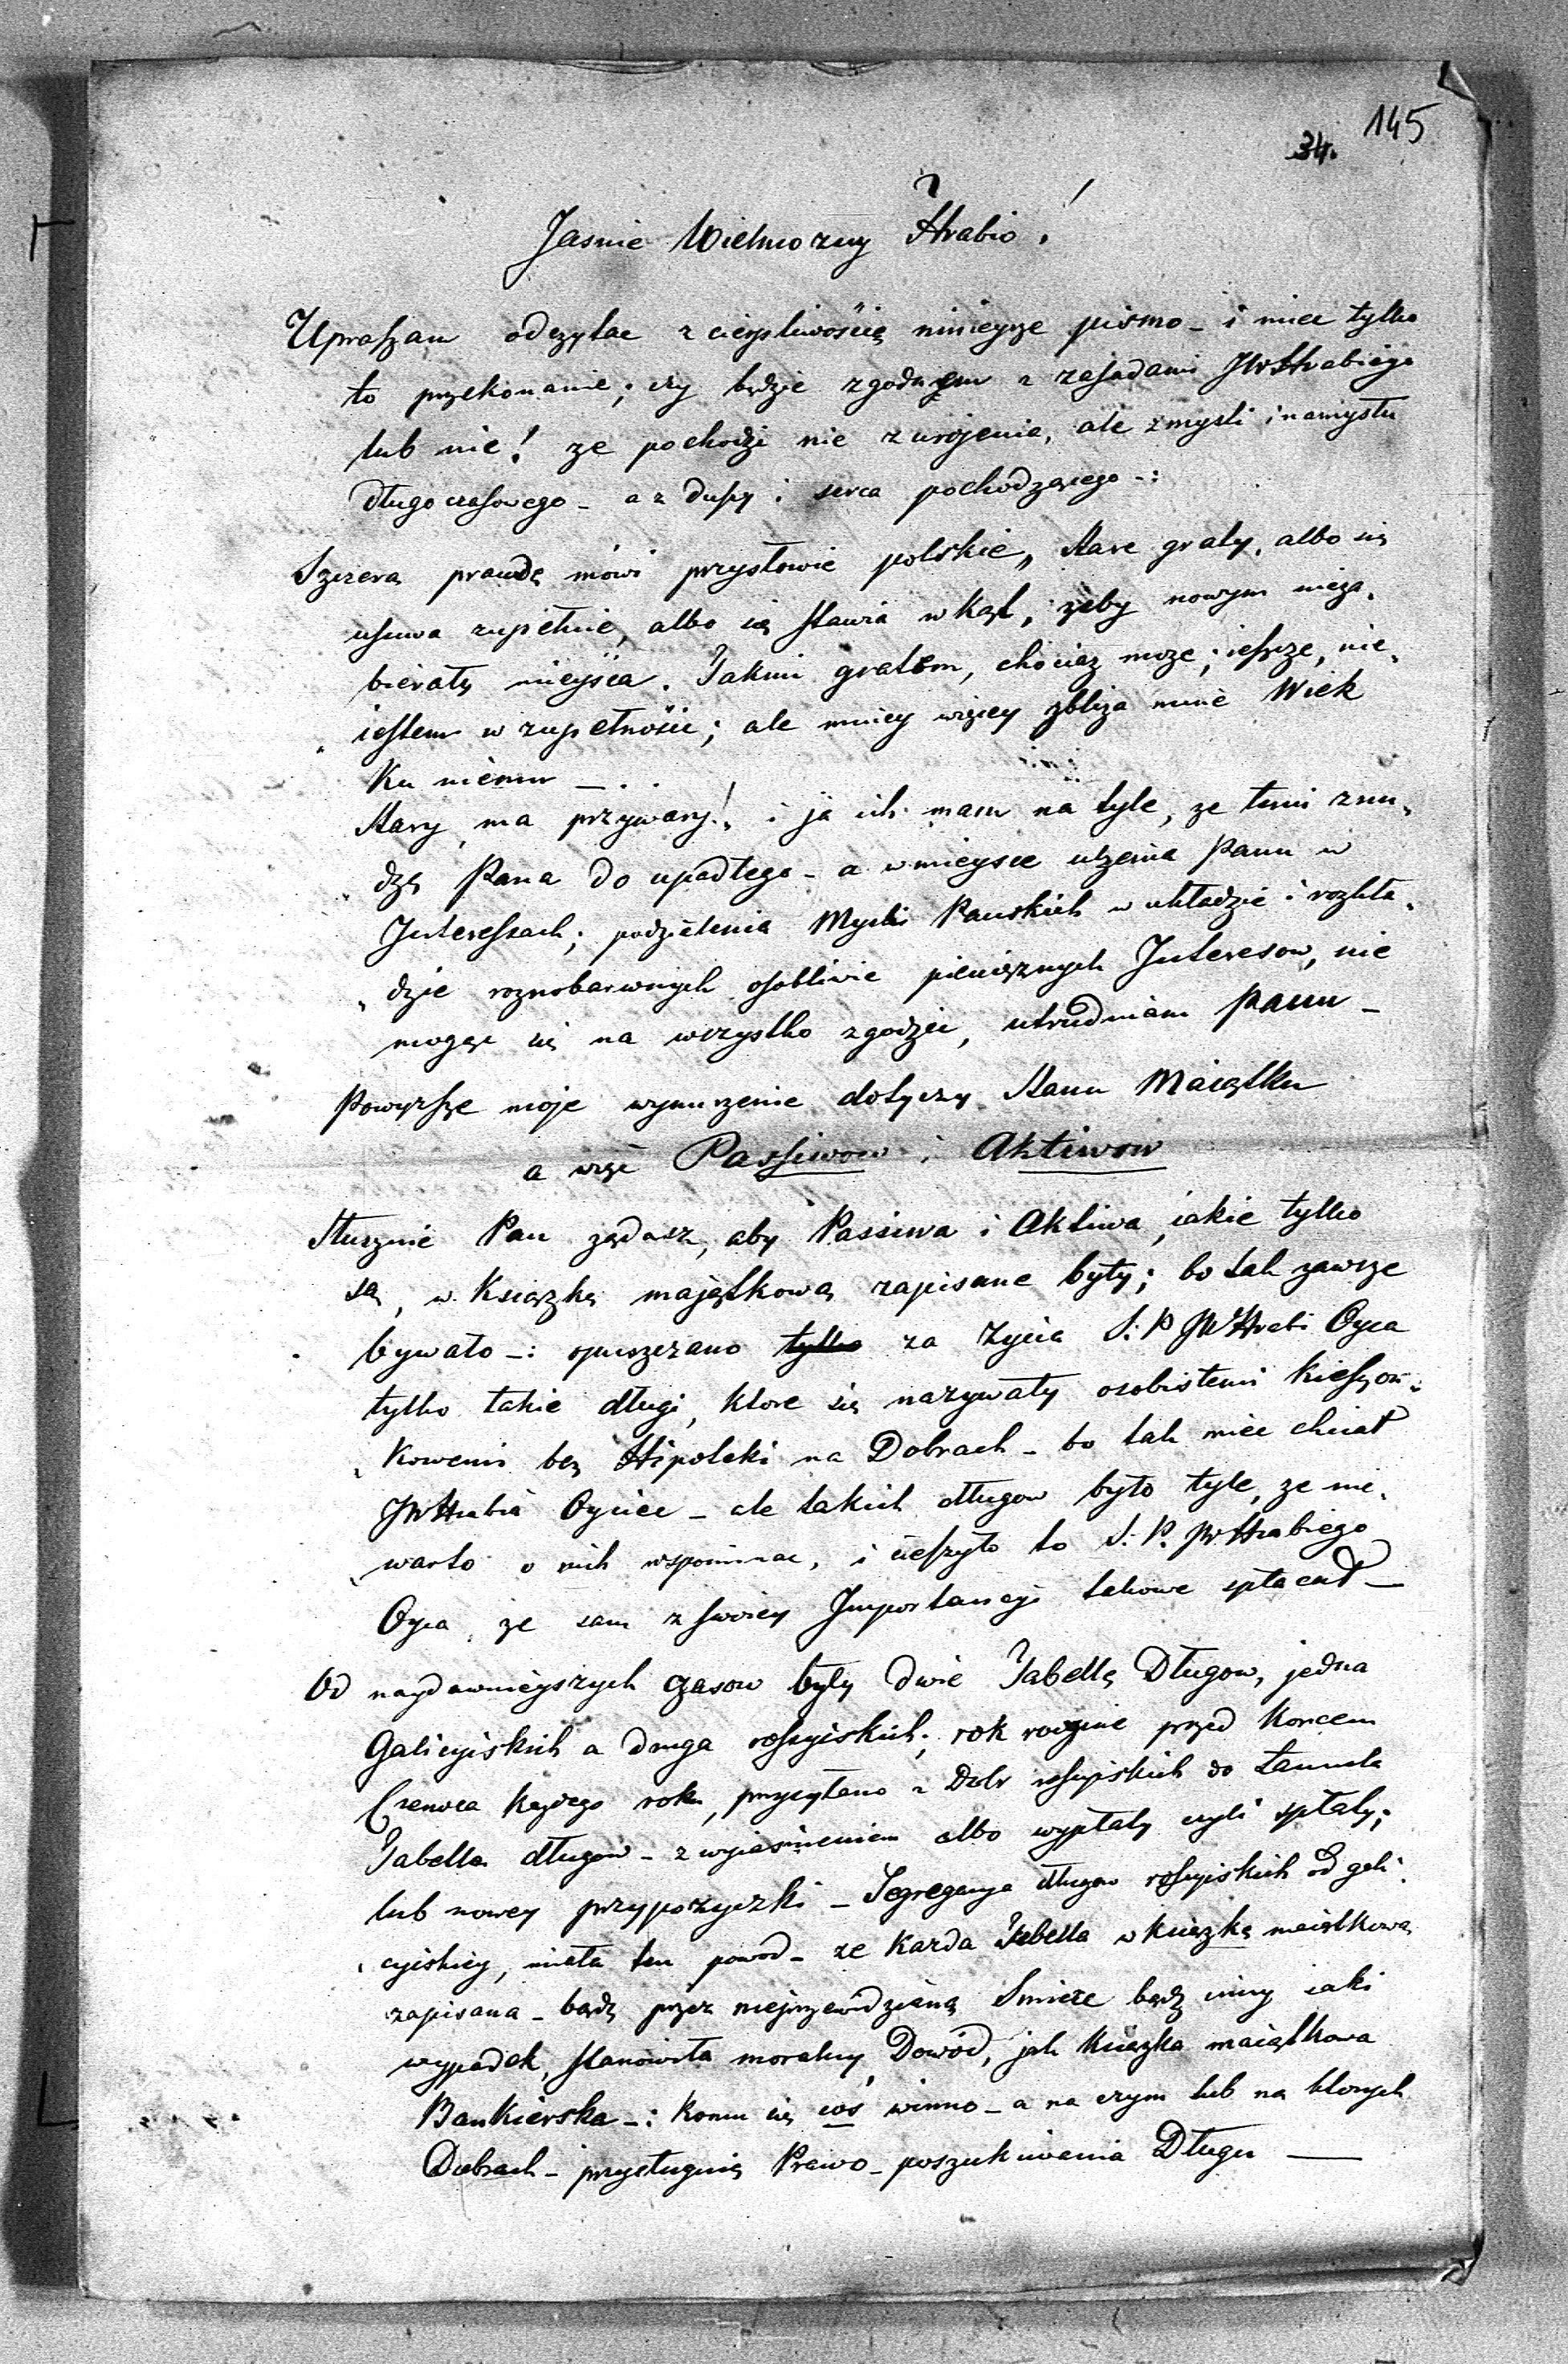 145
34.
Jasnie Wielmozny Hrabio!
Upraszam odczytac z cierpliwością ninieysze pismo - i miec tylko
to przekonanie; czy będzie zgodnem z zasadami JWHrabiego
lub nie! ze pochodzi nie z urojenia, ale z mysli i namysłu
długoczasowego - a z duszy i serca pochodzącego -:
Szczerą prawdę mówi przysłowie polskie „ stare graty, albo się
usuwa zupełnie, albo się stawia w kąt, żeby nowym nieza„
bierały mieysca. Takim gratem, chociaz moze, ieszcze, nie„
„ iestem w zupełnosci; ale mniey więcey zbliza mnie Wiek
Ku niemu —.
Stary, ma przywary! i ja ich mam na tyle, ze temi znu„
„ dzę Pana do upadłego - a w mieysce ulzenia Panu w
Interessach; podzielenia Mysli Panskich w układzie i rozkła„
„ dzie roznobarwnych osobliwie pieniężnych Interesow, nie
mogąc się na wszystko zgodzic, utrudniam Panu —
Powyzsze moje wynurzenie dotyczy Stanu Maiątku
a więc Passiwow i Aktiwow
Słusznie Pan ządasz, aby Passiwa i Aktiwa, iakie tylko
są, w Ksiązkę majątkową zapisane były; bo tak zawsze
bywało -: opuszczano tylko za zycia S: P JWHrabi Oyca
tylko takie długi, ktore się nazywały osobistemi kieszon„
„ kowemi bez Hipoteki na Dobrach - bo tak miec chciał
JWHrabia Oyciec - ale takich długow było tyle, ze nie„
„ warto o nich wspominac, i cieszyło to S. P. JWHrabiego
Oyca, ze sam z swoiey Importancyi takowe spłacał —
Od naydawnieyszych czasow były dwie Tabellę Długow, jedna
Galicyiskich a druga rossyiskich; rok rocznie przed Koncem
Czerwca kazdego roku, przysyłano z Dobr rossyiskich do Łancuta
Tabella długow - z wyiasnieniem albo wypłaty czyli spłaty;
lub nowey przypozyczki - Segregacya długow rossyiskich od gali„
„ cyiskiey, miała ten powod - ze Kazda Tabella w ksiązkę maiątkową
zapisana - bądz przez nieprzewidzianą Smierc bądz inny iaki
wypadek, stanowiła moralny Dowód, jak Ksiązka maiątkowa
Bankierska -: komu się cos winno - a na czym lub na ktorych
Dobrach - przysługuię Prawo - poszukiwania Długu —